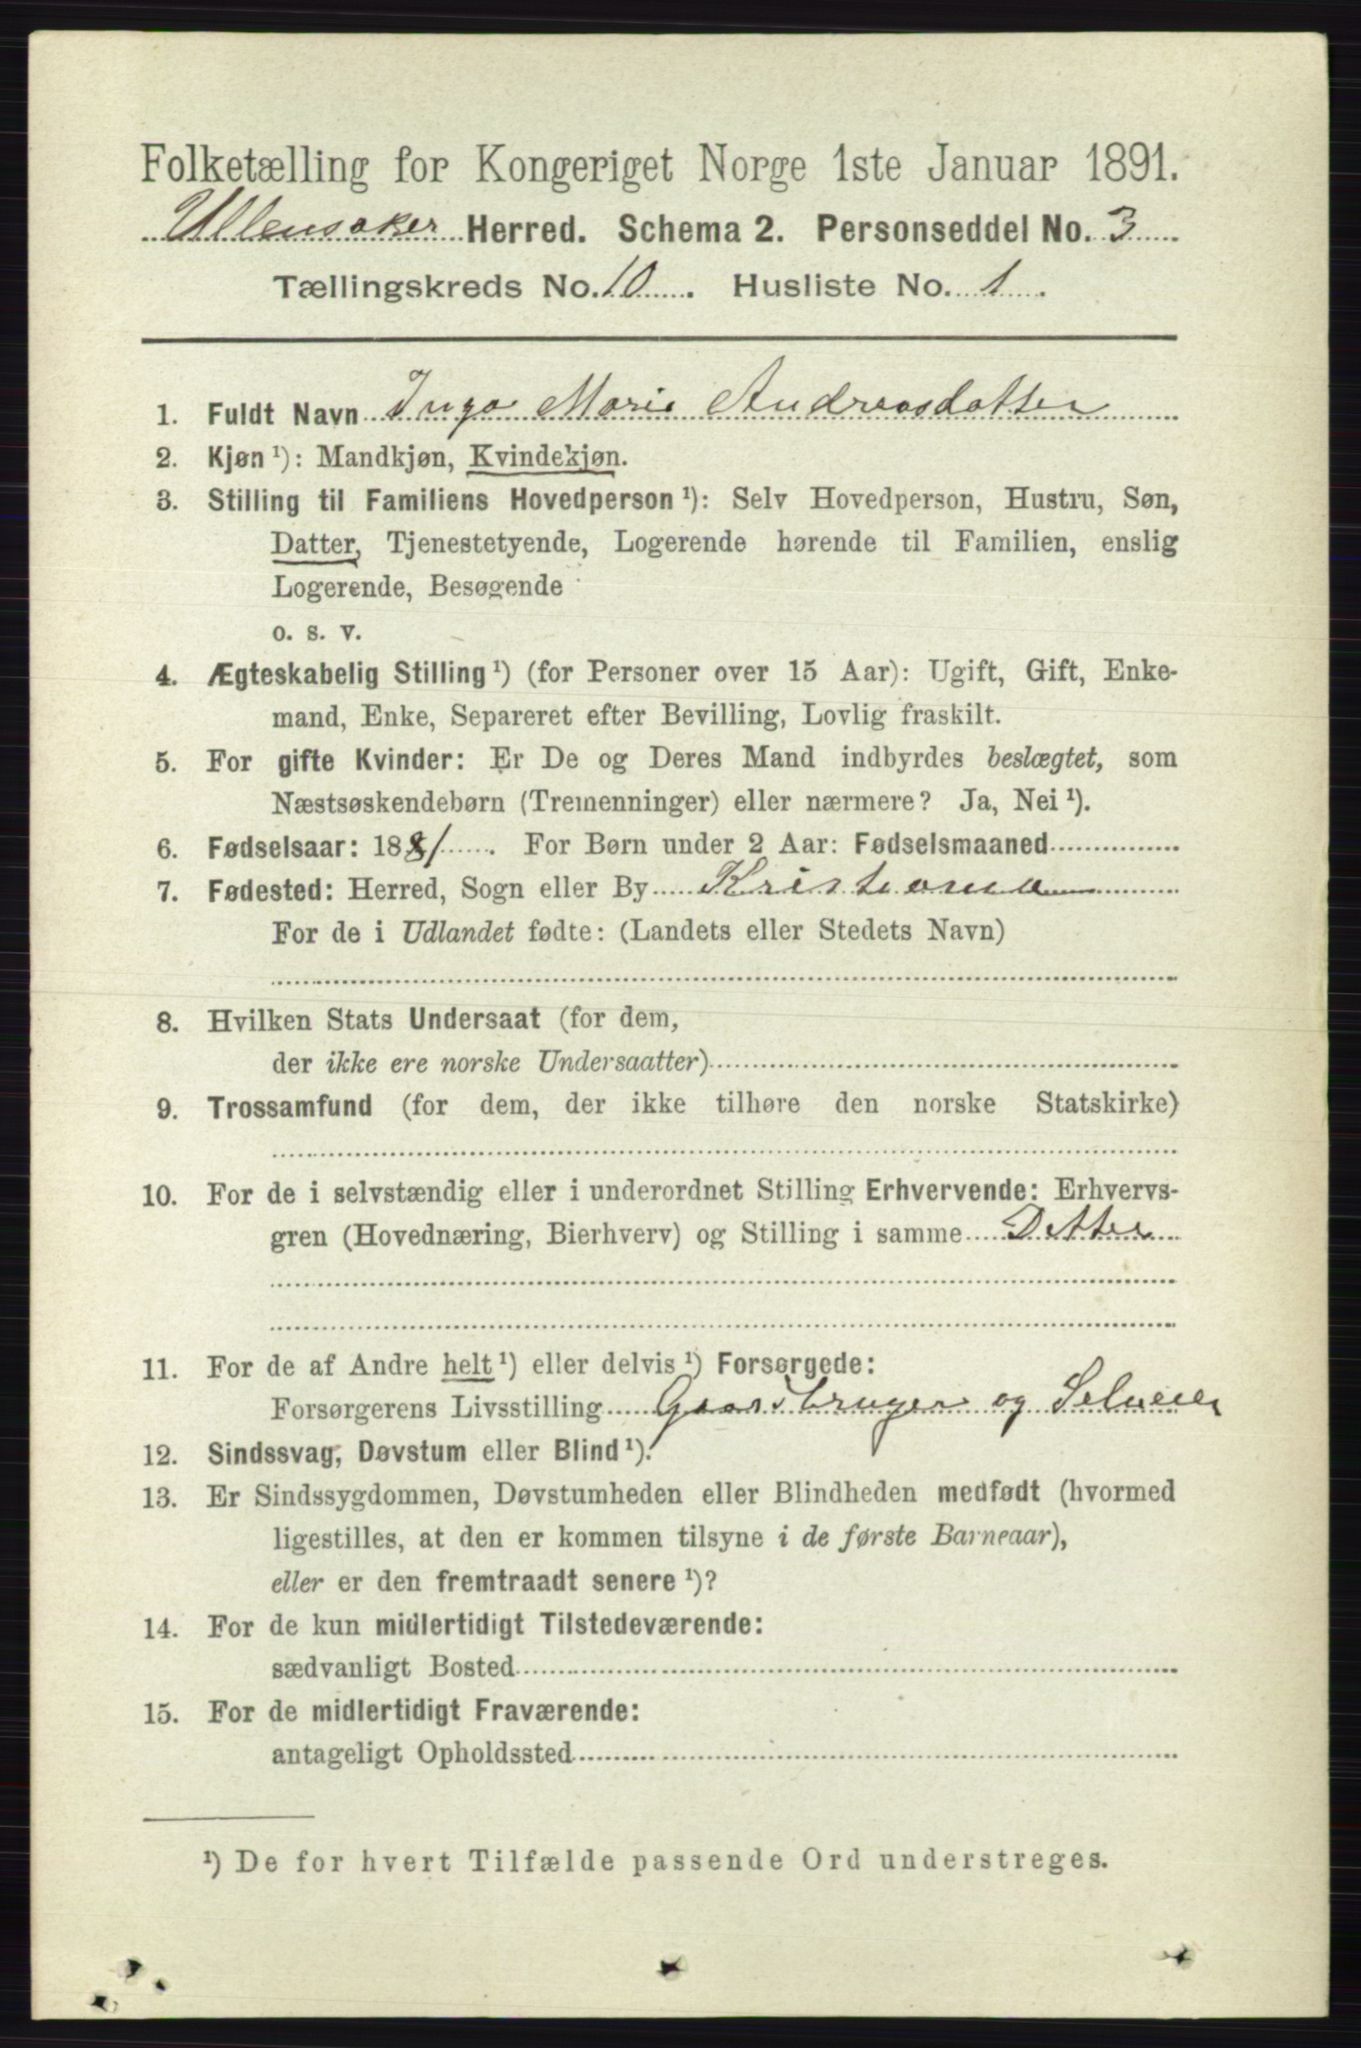 Folketælling for Kongeriget Norge 1ste Januar 1891.
Ullensaker Herred. Schema 2. Personseddel No. 3
Tællingskreds No. 10. Husliste No. 1.
1. Fuldt Navn Inga Marie Andreasdatter
2. Kjøn ¹): Mandkjøn, Kvindekjøn.
3. Stilling til Familiens Hovedperson ¹): Selv Hovedperson, Hustru, Søn,
Datter, Tjenestetyende, Logerende hørende til Familien, enslig
Logerende, Besøgende
o. s. v.
4. Ægteskabelig Stilling ¹) (for Personer over 15 Aar): Ugift, Gift, Enke-
mand, Enke, Separeret efter Bevilling, Lovlig fraskilt.
5. For gifte Kvinder: Er De og Deres Mand indbyrdes beslægtet, som
Næstsøskendebørn (Tremenninger) eller nærmere? Ja, Nei ¹).
6. Fødselsaar: 1881. For Børn under 2 Aar: Fødselsmaaned
7. Fødested: Herred, Sogn eller By Kristiania
For de i Udlandet fødte: (Landets eller Stedets Navn)
8. Hvilken Stats Undersaat (for dem,
der ikke ere norske Undersaatter)
9. Trossamfund (for dem, der ikke tilhøre den norske Statskirke)
10. For de i selvstændig eller i underordnet Stilling Erhvervende: Erhvervs-
gren (Hovednæring, Bierhverv) og Stilling i samme Datter
11. For de af Andre helt ¹) eller delvis ¹) Forsørgede:
Forsørgerens Livsstilling Gaardbruger og Selveier
12. Sindssvag, Døvstum eller Blind ¹).
13. Er Sindssygdommen, Døvstumheden eller Blindheden medfødt (hvormed
ligestilles, at den er kommen tilsyne i de første Barneaar),
eller er den fremtraadt senere ¹)?
14. For de kun midlertidigt Tilstedeværende:
sædvanligt Bosted
15. For de midlertidigt Fraværende:
antageligt Opholdssted
¹) De for hvert Tilfælde passende Ord understreges.